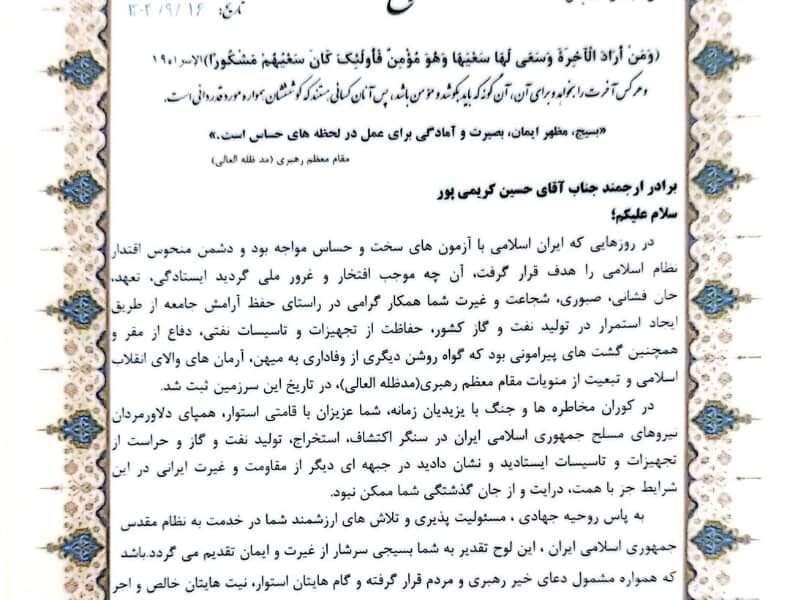 تاریخ: ۱۴۰۴/۹/۱۶
(وَمَنْ أَرَادَ الْآخِرَةَ وَسَعَى لَهَا سَعْيَهَا وَهُوَ مُؤْمِنٌ فَأُولَئِكَ كَانَ سَعْيُهُمْ مَشْكُورًا)الاسراء۱۹
و هر کس آخرت را بخواهد و برای آن، آن گونه که باید بکوشد و مؤمن باشد، پس آنان کسانی هستند که کوششان همواره مورد قدردانی است.
«بسیج، مظهر ایمان، بصیرت و آمادگی برای عمل در لحظه های حساس است.»
مقام معظم رهبری (مد ظله العالی)
برادر ارجمند جناب آقای حسین کریمی پور
سلام علیکم؛
در روزهایی که ایران اسلامی با آزمون های سخت و حساس مواجه بود و دشمن منحوس اقتدار
نظام اسلامی را هدف قرار گرفت، آن چه موجب افتخار و غرور ملی گردید ایستادگی، تعهد،
جان فشانی، صبوری، شجاعت و غیرت شما همکار گرامی در راستای حفظ آرامش جامعه از طریق
ایجاد استمرار در تولید نفت و گاز کشور، حفاظت از تجهیزات و تاسیسات نفتی، دفاع از مقر و
همچنین گشت های پیرامونی بود که گواه روشن دیگری از وفاداری به میهن، آرمان های والای انقلاب
اسلامی و تبعیت از منویات مقام معظم رهبری(مدظله العالی)، در تاریخ این سرزمین ثبت شد.
در کوران مخاطره ها و جنگ با یزیدیان زمانه، شما عزیزان با قامتی استوار، همپای دلاورمردان
نیروهای مسلح جمهوری اسلامی ایران در سنگر اکتشاف، استخراج، تولید نفت و گاز و حراست از
تجهیزات و تاسیسات ایستادید و نشان دادید در جبهه ای دیگر از مقاومت و غیرت ایرانی در این
شرایط جز با همت، درایت و از جان گذشتگی شما ممکن نبود.
به پاس روحیه جهادی ، مسئولیت پذیری و تلاش های ارزشمند شما در خدمت به نظام مقدس
جمهوری اسلامی ایران ، این لوح تقدیر به شما بسیجی سرشار از غیرت و ایمان تقدیم می گردد.باشد
که همواره مشمول دعای خیر رهبری و مردم قرار گرفته و گام هایتان استوار، نیت هایتان خالص و اجر